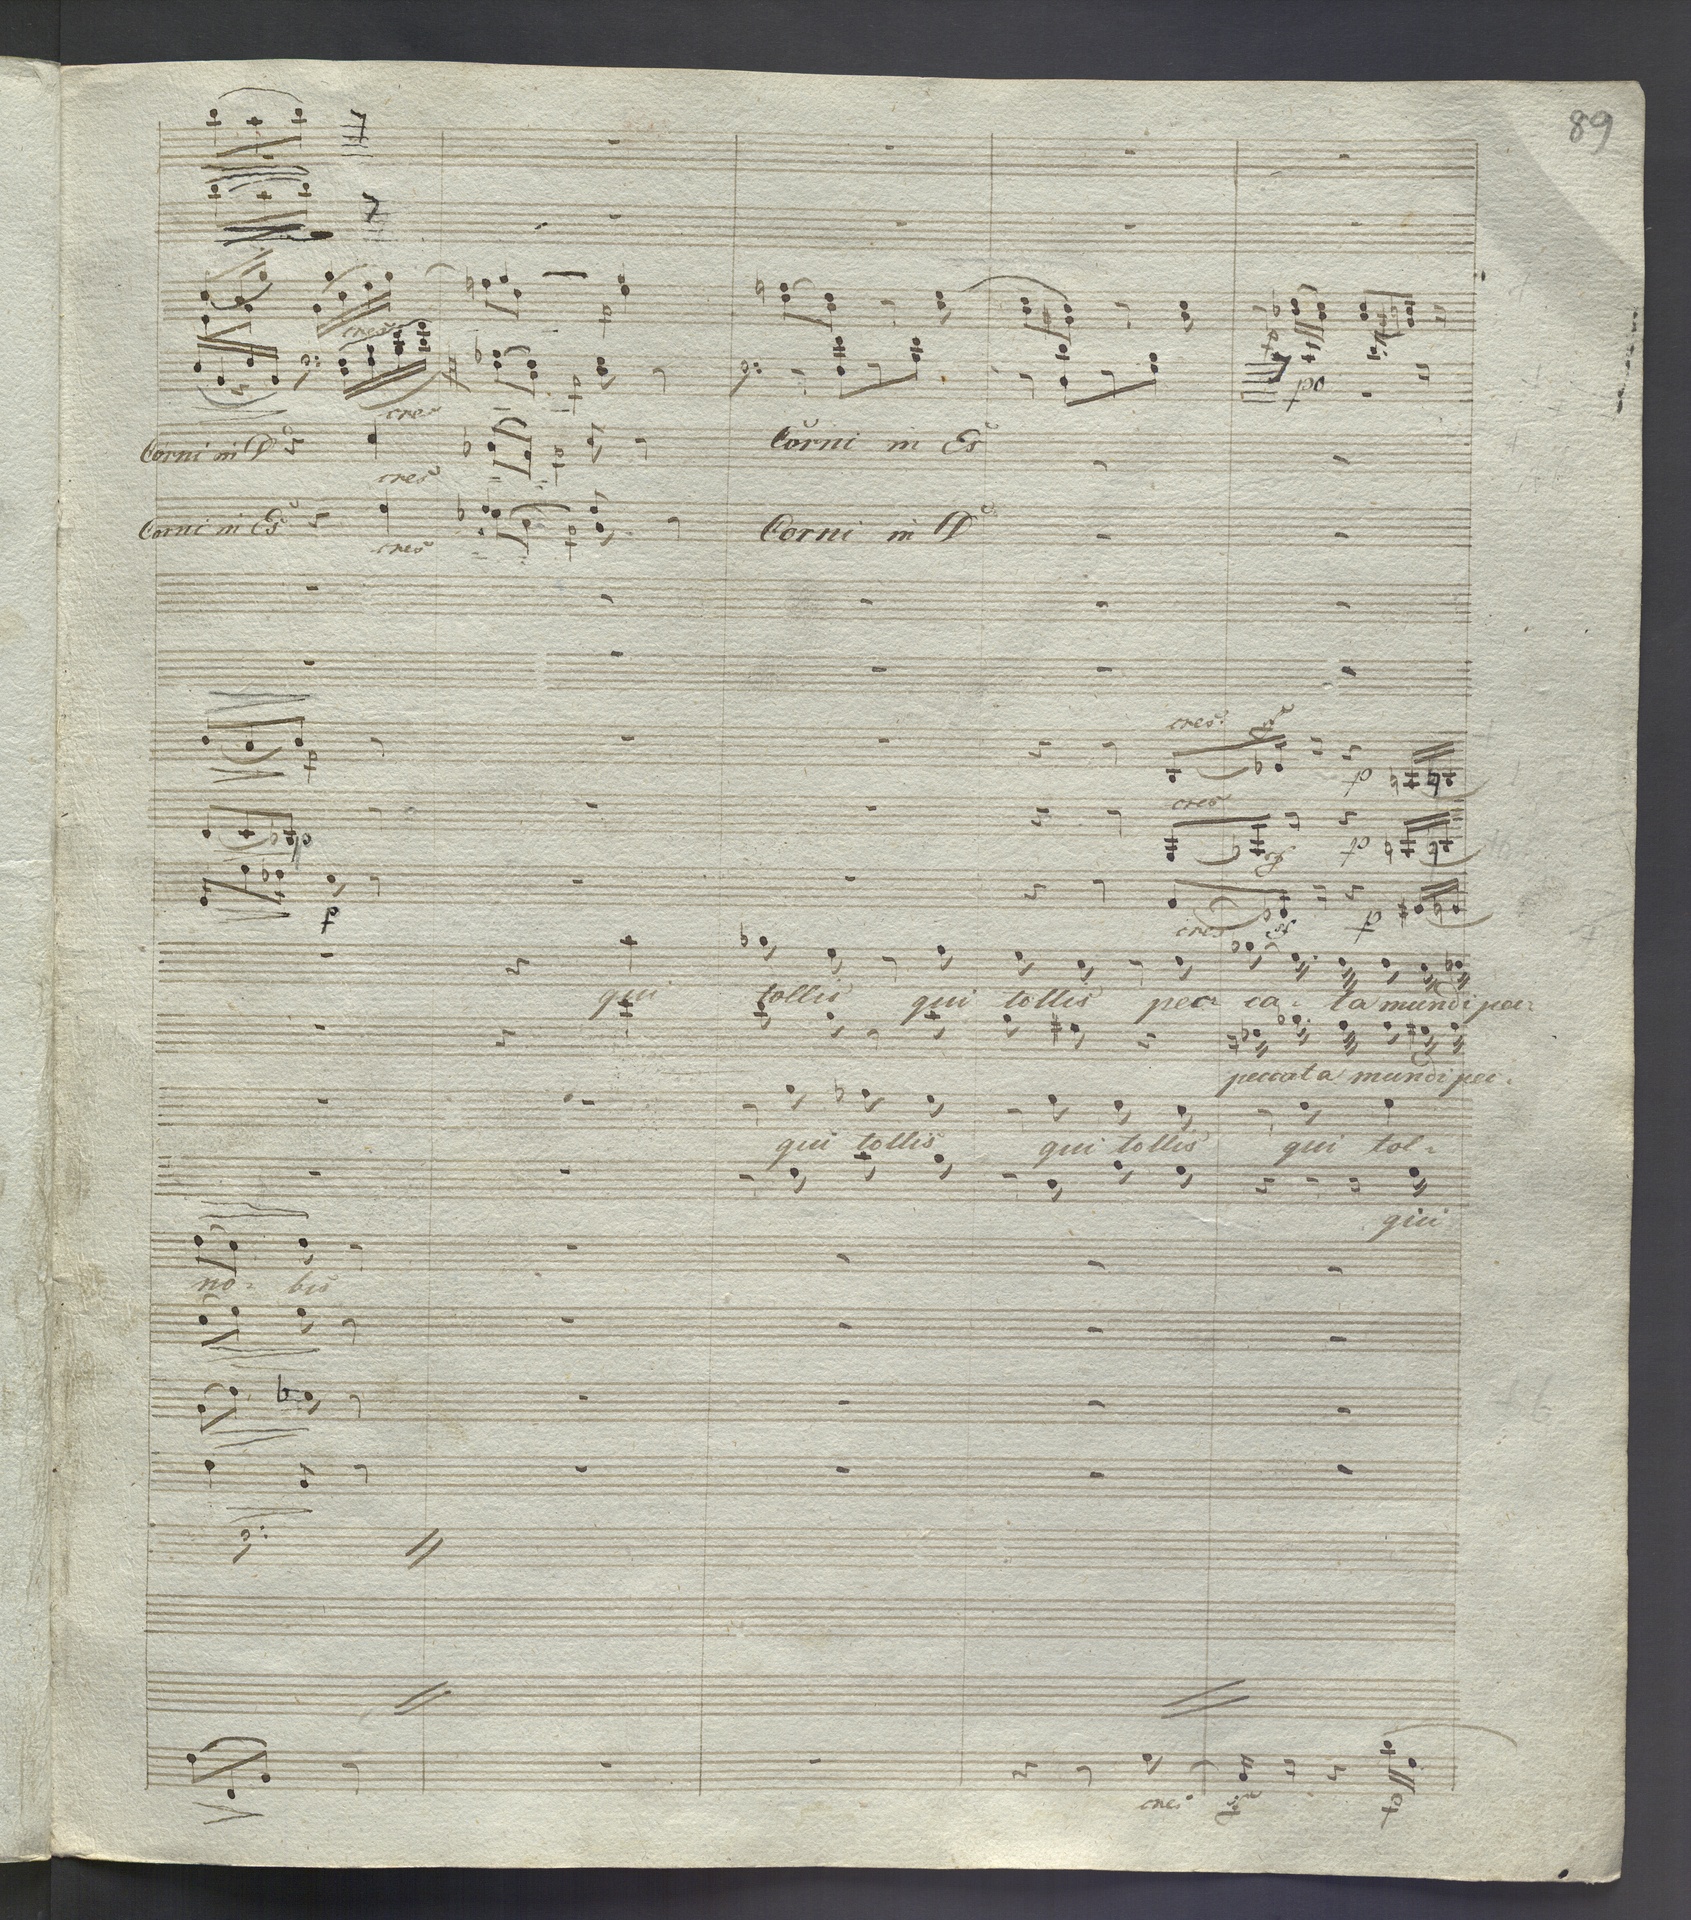 89
cres
cres
Corni in D
cres
Corni in Es
Corni in Es
cres
Corni in D
cres
p
cres
p
p
p
cres
p
qui tollis qui tollis pec ca - ta mundi pec-
peccata mundi pec-
qui tollis qui tollis qui tol-
qui
no - bis
cres